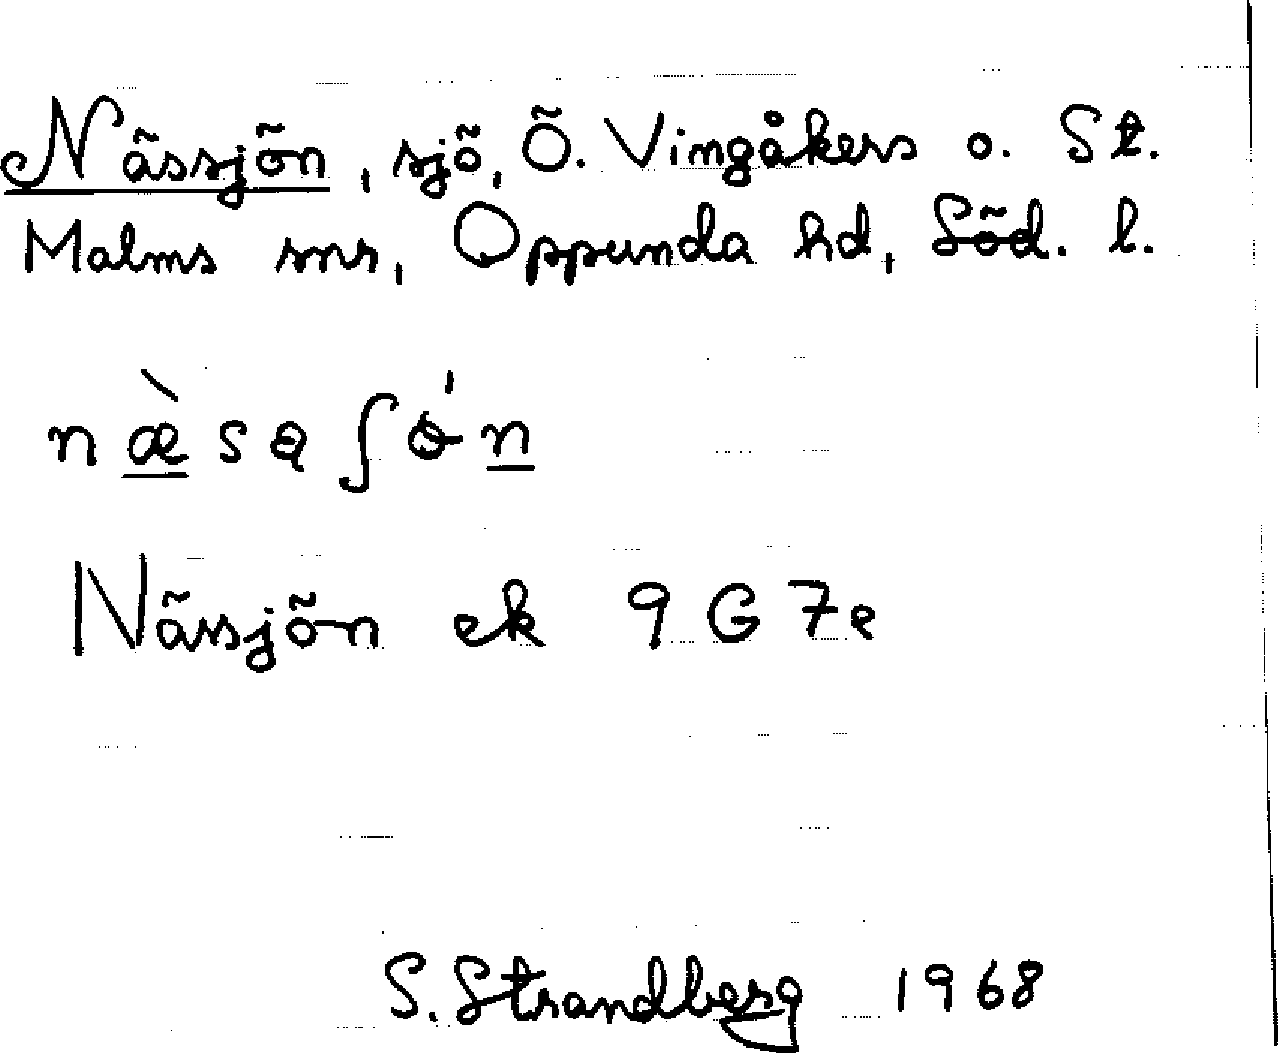 Nässjön, sjö, Ö. Vingåkers o. St.
Malms snr, Oppunda hd, Söd. l.
Nässjön ek 9G7e
S. Strandberg 1968